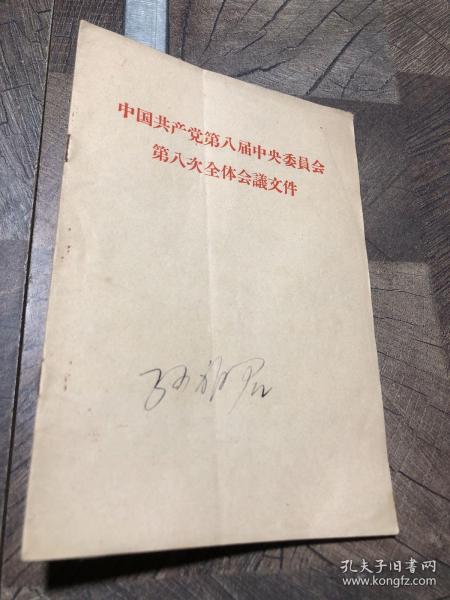 中国共产党第八届中央委員会
第八次全体会議文件
孔夫子旧书网
www.kongfz.com